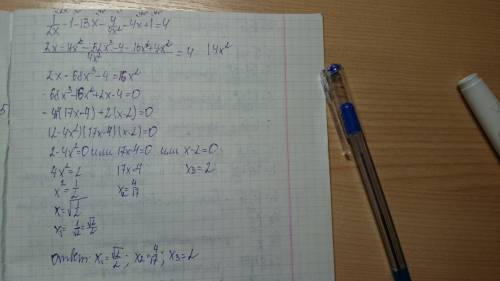 1/2x - 1 - 13x - 4/4x² - 4x + 1 = 4
2x - 4x² - 52x³ - 4 - 16x³ + 4x² / 4x² = 4 | 4x²
2x - 68x³ - 4 = 16x²
68x³ - 16x² + 2x - 4 = 0
- 4²(17x - 4) + 2(x - 2) = 0
(2 - 4x²)(17x - 4)(x - 2) = 0
2 - 4x² = 0 или 17x - 4 = 0 или x - 2 = 0
4x² = 2 17x - 4 x₃ = 2
x² = 1/2 x₂ = 4/17
x = √1/2
x₁ = 1/√2 = √2/2
ответ: x₁ = √2/2 ; x₂ = 4/17 ; x₃ = 2